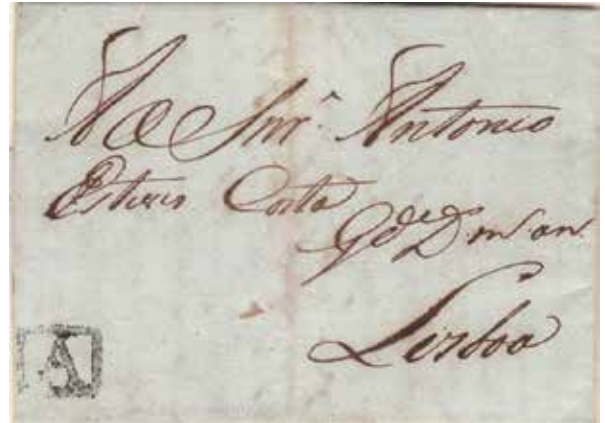 Ao Snr. Antonio
Esteves Costa
Gde Ds m. an.
Lisboa
A